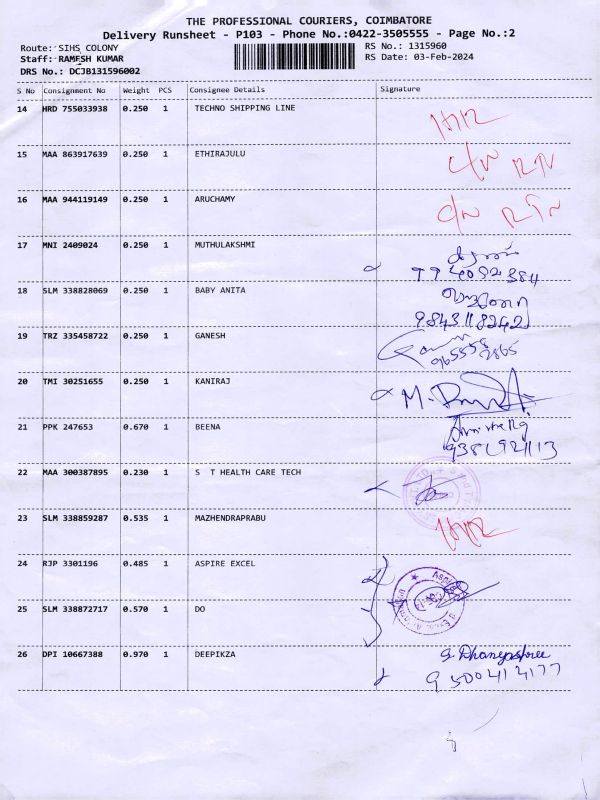 THE PROFESSIONAL COURIERS, COIMBATORE
Delivery Runsheet - P103 - Phone No.:0422-3505555 - Page No.:2
Route: SIHS COLONY
Staff: RAMESH KUMAR
DRS No.: DCJB131596002
RS No.: 1315960
RS Date: 03-Feb-2024
S No Consignment No Weight PCS Consignee Details Signature
14 HRD 755033938 0.250 1 TECHNO SHIPPING LINE
15 MAA 863917639 0.250 1 ETHIRAJULU
16 MAA 944119149 0.250 1 ARUCHAMY
17 MNI 2409024 0.250 1 MUTHULAKSHMI
18 SLM 338828069 0.250 1 BABY ANITA
9843118242
19 TRZ 335458722 0.250 1 GANESH
20 TMI 30251655 0.250 1 KANIRAJ
21 PPK 247653 0.670 1 BEENA
22 MAA 300387895 0.230 1 S T HEALTH CARE TECH
23 SLM 338859287 0.535 1 MAZHENDRAPRABU
24 RJP 3301196 0.485 1 ASPIRE EXCEL
25 SLM 338872717 0.570 1 DO
26 DPI 10667388 0.970 1 DEEPIKZA